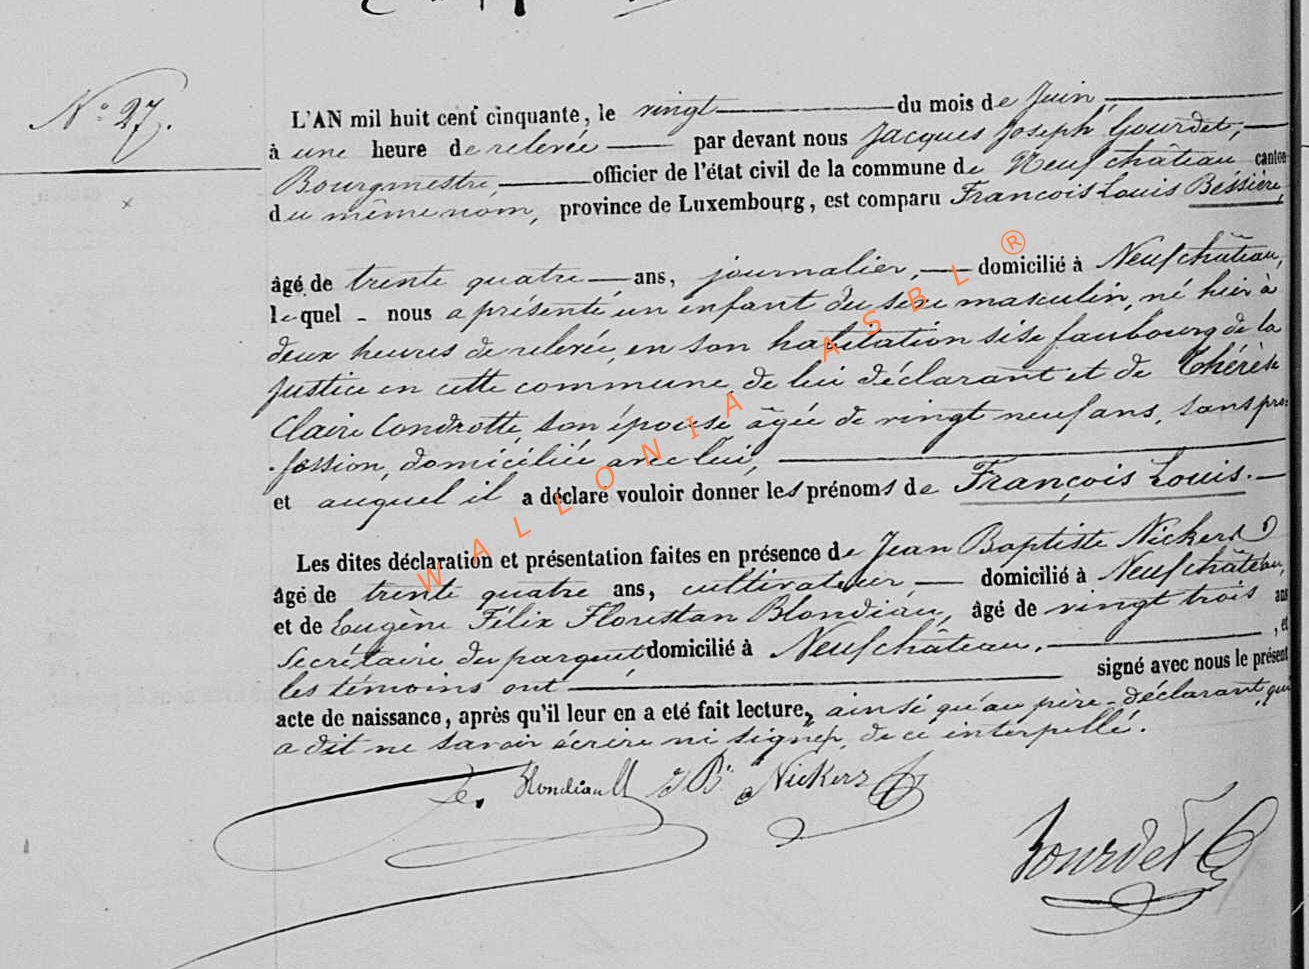 N° 27.
L'AN mil huit cent cinquante, le vingt du mois de Juin,
à une heure de relevée par devant nous Jacques Joseph Gourdet,
Bourgmestre, officier de l'état civil de la commune de Neufchâteau canton
du même nom, province de Luxembourg, est comparu François Louis Bessière,
âgé de trente quatre ans, journalier, domicilié à Neufchâteau,
lequel nous a présenté un enfant du sexe masculin, né hier à
deux heures de relevée, en son habitation sise faubourg de la
justice en cette commune, de lui déclarant et de Thérèse
Claire Condrotte, son épouse âgée de vingt neuf ans, sans pro=
fession, domiciliée avec lui,
et auquel il a déclaré vouloir donner les prénoms de François Louis.
Les dites déclaration et présentation faites en présence de Jean Baptiste Nickers
âgé de trente quatre ans, cultivateur domicilié à Neufchâteau,
et de Eugène Félix Florestan Blondiau, âgé de vingt trois ans
Secrétaire du parquet domicilié à Neufchâteau, , et
les témoins ont signé avec nous le présent
acte de naissance, après qu'il leur en a eté fait lecture, ainsi qu'au père déclarant, qui
a dit ne savoir écrire ni signer, de ce interpellé.
Blondiau JB Nickers
Gourdet
WALLONIA ASBL ®